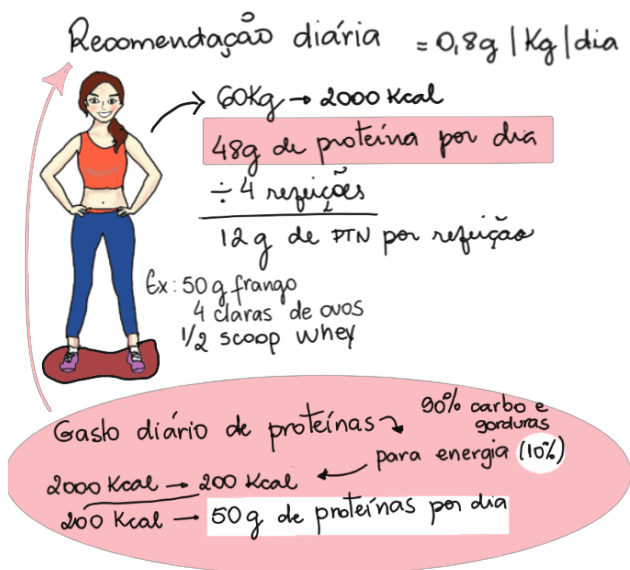 Recomendação diária = 0,8g | Kg | dia
60Kg → 2000 Kcal
48g de proteína por dia
÷ 4 refeições
12g de PTN por refeição
Ex: 50g frango
4 claras de ovos
1/2 scoop whey
90% carbo e
gorduras
Gasto diário de proteínas
para energia (10%)
2000 Kcal → 200 Kcal
200 Kcal → 50g de proteínas por dia